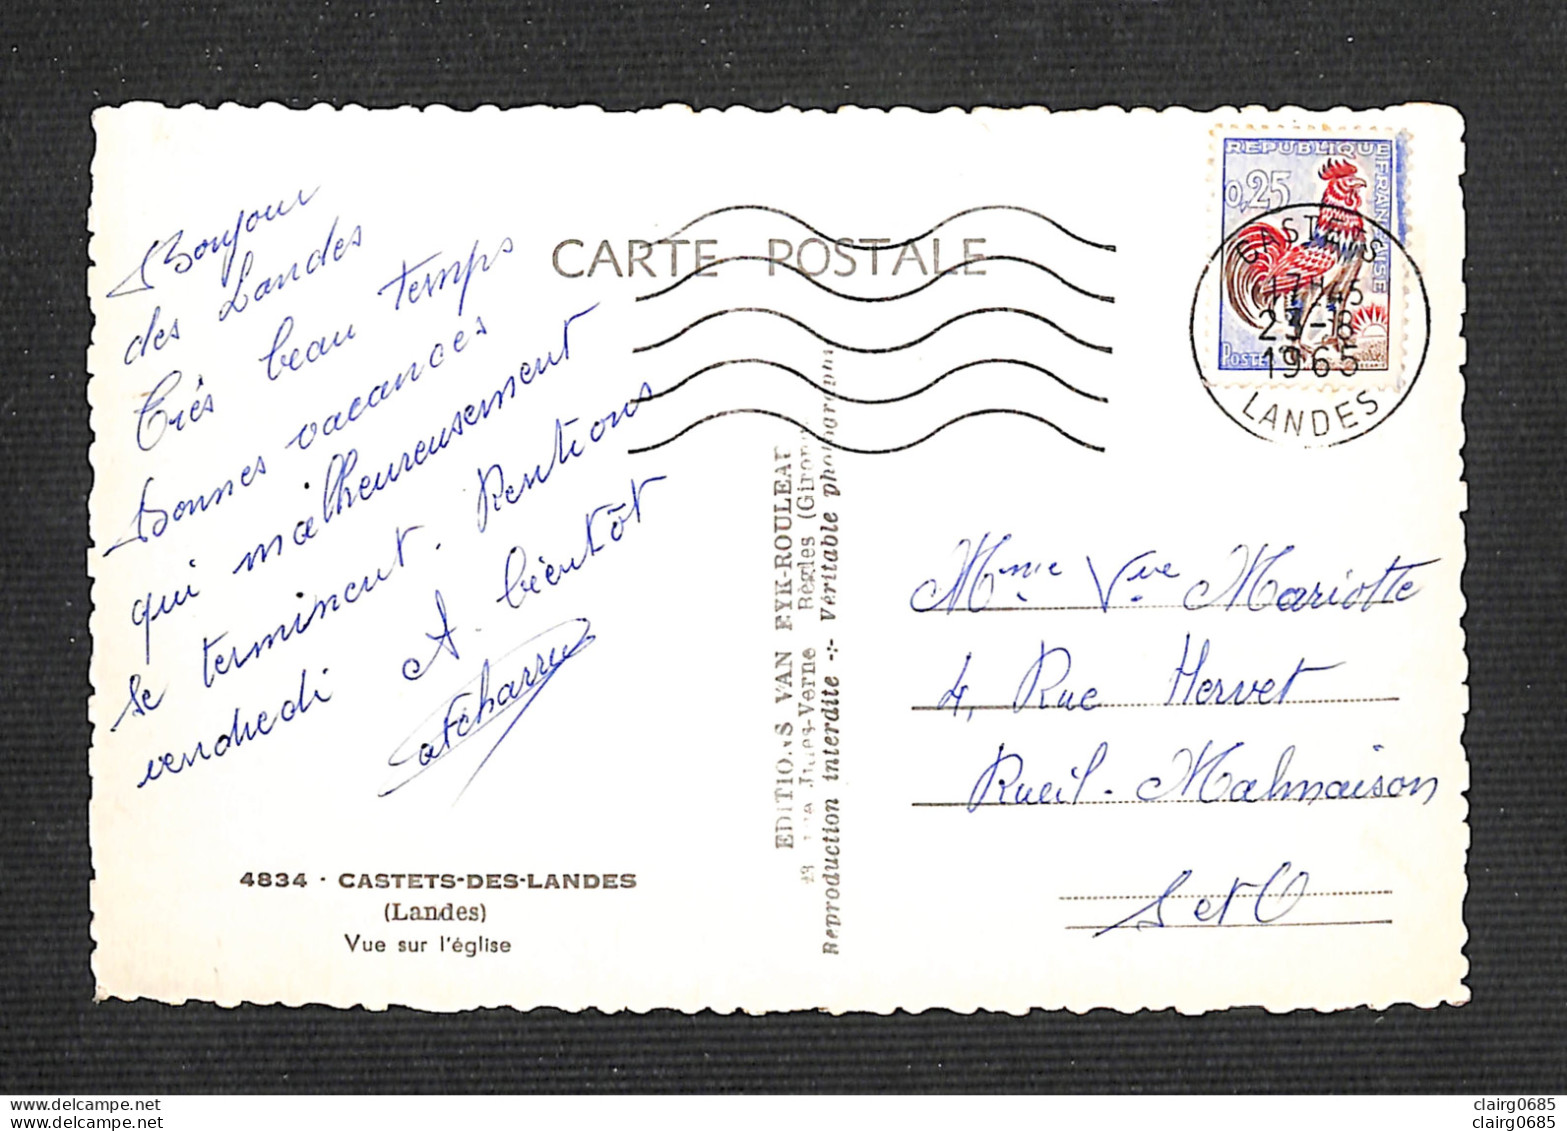 Bonjour
des Landes
Très beau temps
Bonnes vacances
qui malheureusement
se terminent. Rentrons
vendredi A bientôt
4834 · CASTETS-DES-LANDES
(Landes)
Vue sur l'église
CARTE POSTALE
EDITIONS VAN EYK-ROULEAU
Jules-Verne Bègles
Reproduction interdite -:- Véritable photographie
REPUBLIQUE FRANÇAISE
0,25
POSTES
CASTETS
17H45
1965
LANDES
Mme Vve Mariotte
4, Rue Hervet
Rueil-Malmaison
S et O
www.delcampe.net
www.delcampe.net
clairg0685
clairg0685